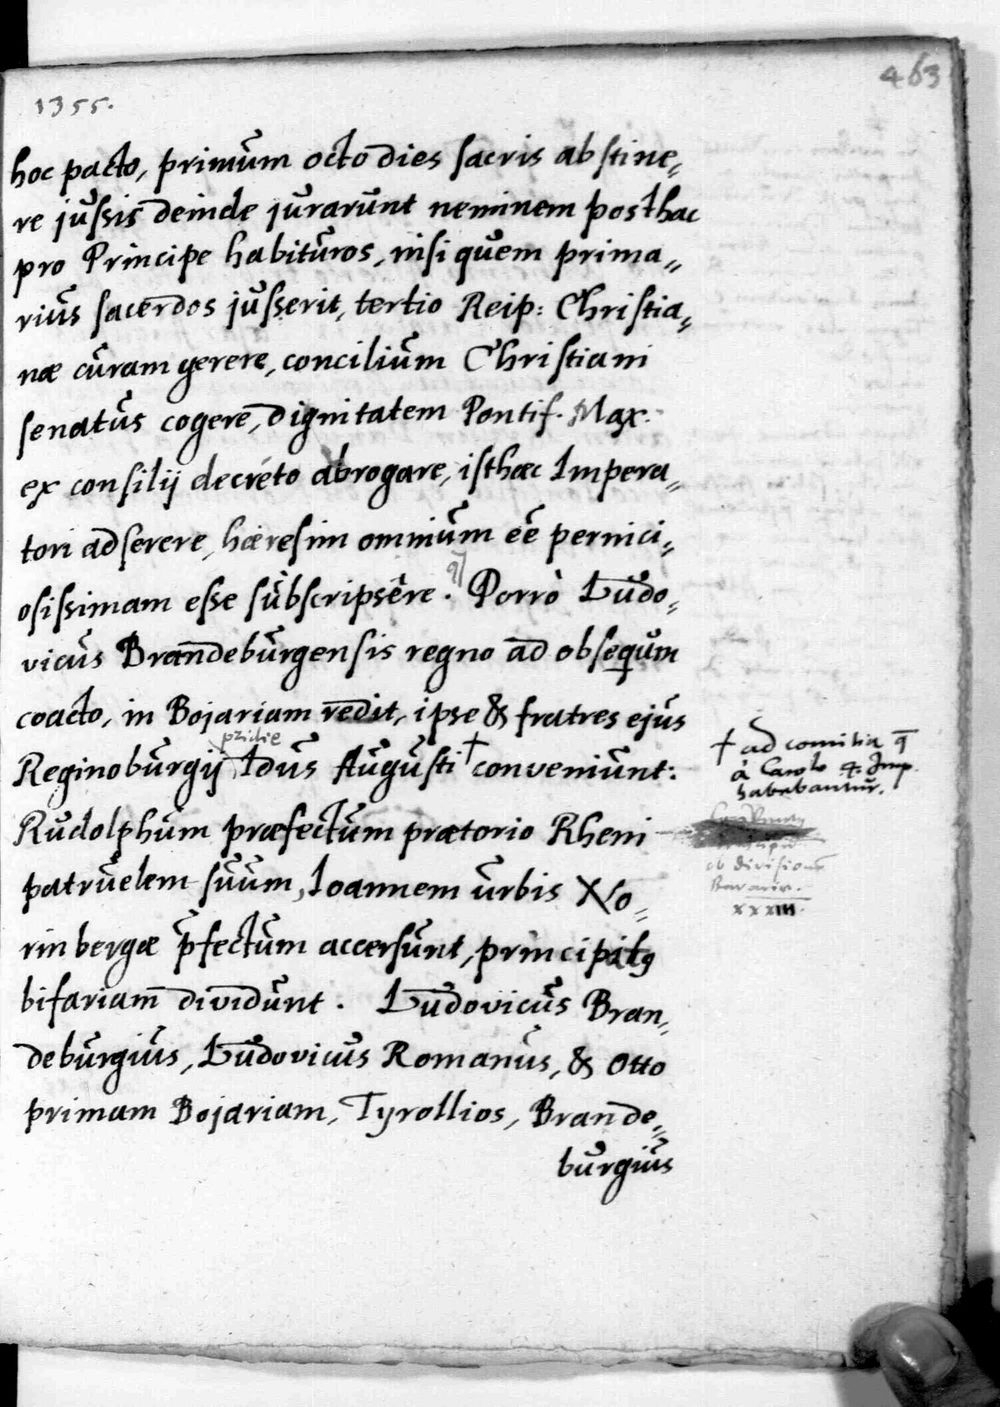 463
1355.
hoc pacto, primùm octo dies sacris abstine„
re jussis deinde jurarunt neminem posthac
pro Principe habituros, nisi quem prima„
rius sacerdos jusserit, tertio Reip: Christia„
næ curam gerere, concilium Christiani
senatus cogere, dignitatem Pontif. Max.
ex consilij decreto abrogare, isthæc Impera„
tori adserere, hæresim omnium eẽ pernici„
osissimam esse subscripsêre. Porrò Ludo„
vicus Brandeburgensis regno ad obsequm
coacto, in Bojariam redit, ipse & fratres ejus
pridie
Reginoburgij Idus Augusti † conveniunt:
Rudolphum præfectum prætorio Rheni
patruelem suum, Ioannem urbis No„
rinbergæ p̃fectum accersunt, principatus
bifariam dividunt. Ludovicus Bran„
deburgius, Ludovicus Romanus, & Otto
primam Bojariam, Tyrollios, Brande„
burgius
† ad comitia q̃
à Carolo 4. Imp.
habebantur.
ob divisionẽ
Bavariæ.
XXXIII.